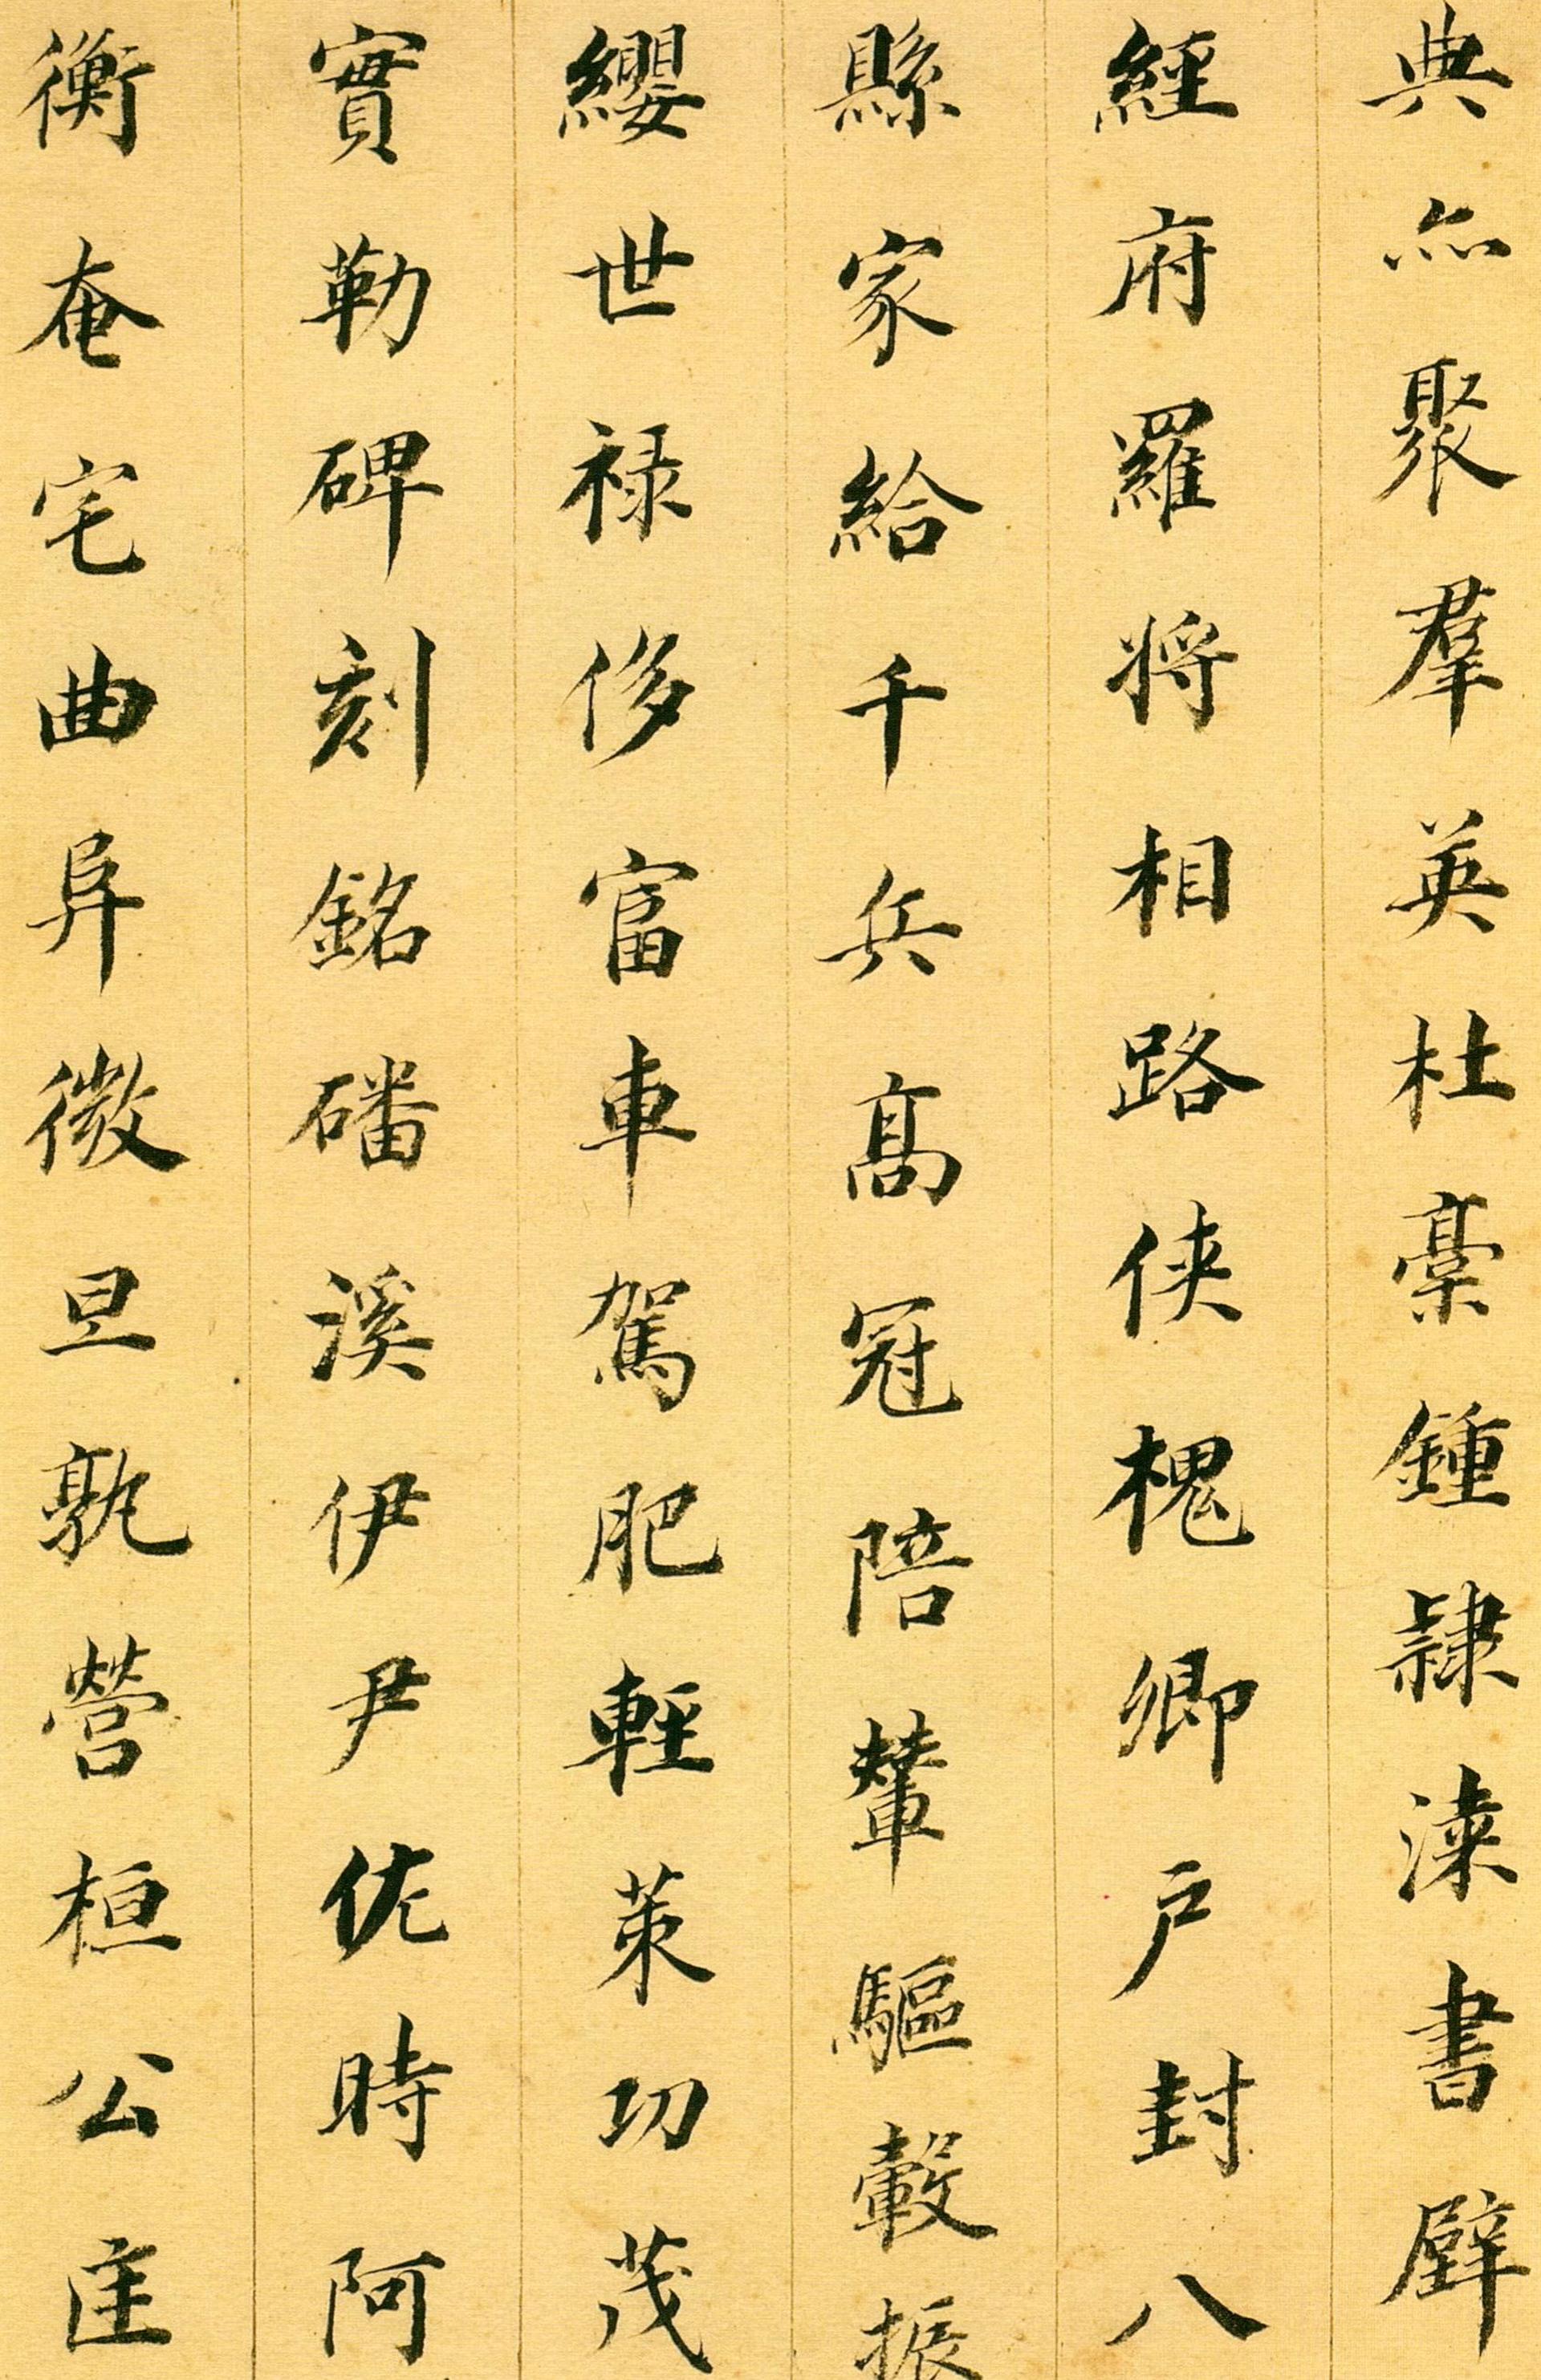 典亦聚羣英杜稾鍾隸漆書壁
經府羅將相路俠槐卿户封八
縣家給千兵髙冠陪輦驅轂振
纓世禄侈富車駕肥輕策功茂
實勒碑刻銘磻溪伊尹佐時阿
衡奄宅曲阜微旦孰營桓公匡